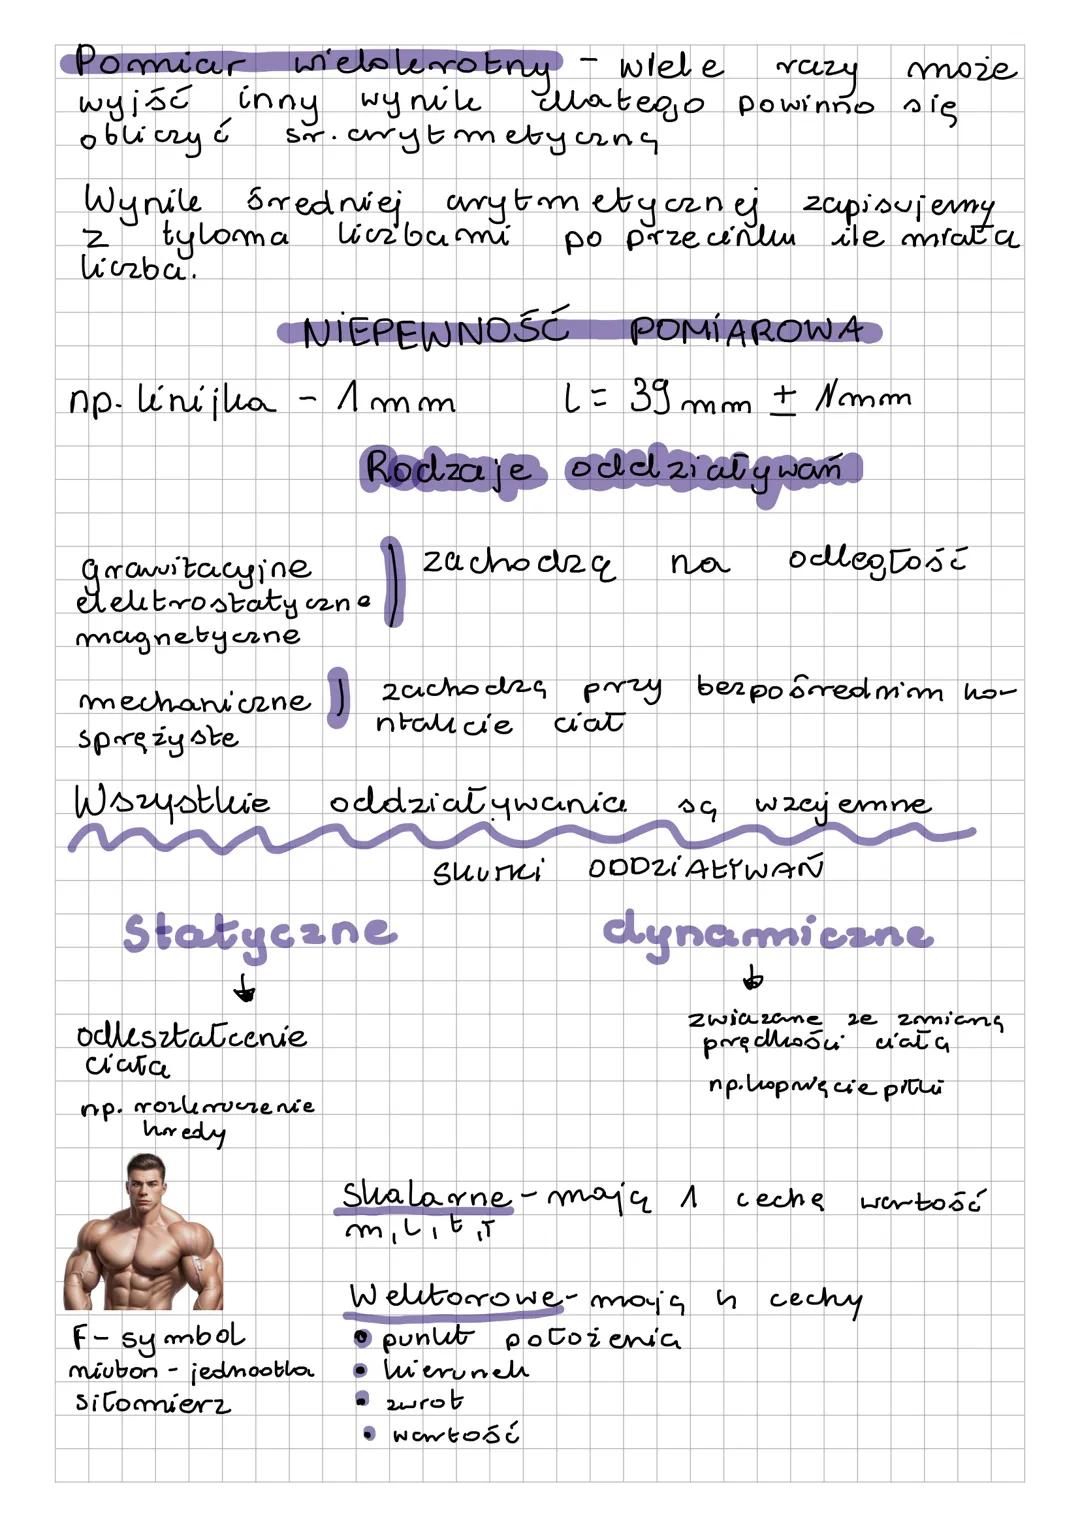 Pomiar wielokrotny - wiele razy może
wyjść inny wynik dlatego powinno się
obliczyć śr. arytmetyczną
Wynik średniej arytmetycznej zapisujemy
z tyloma liczbami po przecinku ile miała
liczba.
NIEPEWNOŚĆ POMIAROWA
np. linijka - 1 mm l = 39 mm ± 1mm
Rodzaje oddziaływań
grawitacyjne
elektrostatyczne
magnetyczne
zachodzą na odległość
mechaniczne
sprężyste
zachodzą przy bezpośrednim ko-
ntakcie ciał
Wszystkie oddziaływania są wzajemne
SKUTKI ODDZIAŁYWAŃ
statyczne dynamiczne
odkształcenie
ciała
np. rozkruczenie
kredy
związane ze zmianą
prędkości ciała
np. kopnięcie piłki
Skalarne - mają 1 cechę wartość
m, l, t, T
Wektorowe - mają 4 cechy
• punkt położenia
• kierunek
• zwrot
• wartość
F - symbol
niuton - jednostka
siłomierz